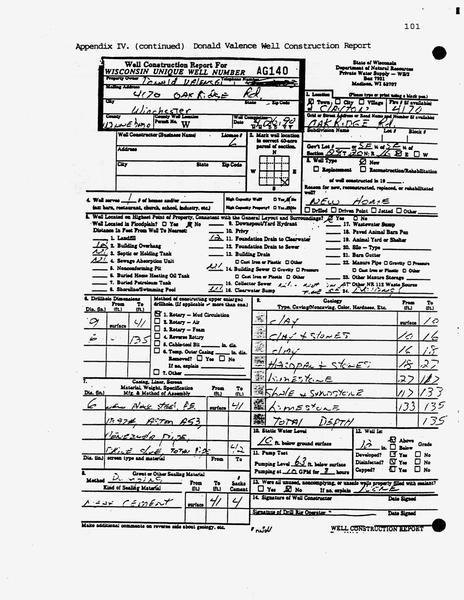 101
Appendix IV. (continued) Donald Valence Well Construction Report
Well Construction Report For
WISCONSIN UNIQUE WELL NUMBER AG140
State of Wisconsin
Department of Natural Resources
Private Water Supply - WS/2
Box 7921
Madison, WI 53707
Property Owner Telephone Number
Mailing Address
4170 OAK RIDGE Rd.
City State Zip Code
Winchester
County Well Permit No. W
1. Location (Please type or print using a black pen.)
Town City Village Fire # (if available)
CLAYTON 4170
Grid or Street Address or Road Name and Number (if available)
OAK RIDGE Rd
Subdivision Name Lot # Block #
Well Constructor (Business Name) License #
Address
City State Zip Code
2. Mark well location in correct 40-acre parcel of section.
Gov't Lot # or SE ¼ of SE ¼ of
Section
3. Well Type New
Replacement Reconstruction/Rehabilitation
of well constructed in 19
Reason for new, reconstructed, replaced, or rehabilitated well?
NEW HOME
Drilled Driven Point Jetted Other
4. Well serves 1 # of homes and/or
(ex: barn, restaurant, church, school, industry, etc.)
High Capacity Well? Yes No
High Capacity Property? Yes No
5. Well Located on Highest Point of Property, Consistent with the General Layout and Surroundings? Yes No
Well Located in Floodplain? Yes No
Distance In Feet From Well To Nearest:
1. Landfill
2. Building Overhang
3. Septic or Holding Tank
4. Sewage Absorption Unit
5. Nonconforming Pit
6. Buried Home Heating Oil Tank
7. Buried Petroleum Tank
8. Shoreline/Swimming Pool
9. Downspout/Yard Hydrant
10. Privy
11. Foundation Drain to Clearwater
12. Foundation Drain to Sewer
13. Building Drain
Cast Iron or Plastic Other
14. Building Sewer Gravity Pressure
Cast Iron or Plastic Other
15. Collector Sewer
16. Clearwater Sump
17. Wastewater Sump
18. Paved Animal Barn Pen
19. Animal Yard or Shelter
20. Silo - Type
21. Barn Gutter
22. Manure Pipe Gravity Pressure
Cast Iron or Plastic Other
23. Other Manure Storage
24. Other NR 112 Waste Source
6. Drillhole Dimensions
Dia. (in.) From (ft.) To (ft.)
9 surface 41
6 135
Method of constructing upper enlarged drillhole. (If applicable - more than one.)
1. Rotary - Mud Circulation
2. Rotary - Air
3. Rotary - Foam
4. Reverse Rotary
5. Cable-tool Bit in. dia.
6. Temp. Outer Casing in. dia.
Removed? Yes No
If no, explain
7. Other
9. Geology
Type, Caving/Noncaving, Color, Hardness, Etc. From (ft.) To (ft.)
CLAY surface 10
CLAY & STONES 10 16
CLAY 16 18
HARDPAN & STONES 18 27
LIMESTONE 27 117
SHALE & SANDSTONE 117 133
LIMESTONE 133 135
TOTAL DEPTH 135
7. Casing, Liner, Screen
Material, Weight, Specification
Mfg. & Method of Assembly
Dia. (in.) From (ft.) To (ft.)
6 New Blk Steel, P.E. surface 41
ASTM A53
Dia. (in.) screen type and material
10. Static Water Level
10 ft. below ground surface
11. Pump Test
Pumping Level 63 ft. below surface
Pumping at 10 GPM for hours
12. Well Is:
12 in. Above Below Grade
Developed? Yes No
Disinfected? Yes No
Capped? Yes No
8. Grout or Other Sealing Material
Method
Kind of Sealing Material From (ft.) To (ft.) Sacks Cement
NEAT CEMENT surface 41 4
13. Were all unused, noncomplying, or unsafe wells properly filled with sealant?
Yes No If no, explain NONE
14. Signature of Well Constructor Date Signed
Signature of Drill Rig Operator Date Signed
Make additional comments on reverse side about geology, etc.
WELL CONSTRUCTION REPORT